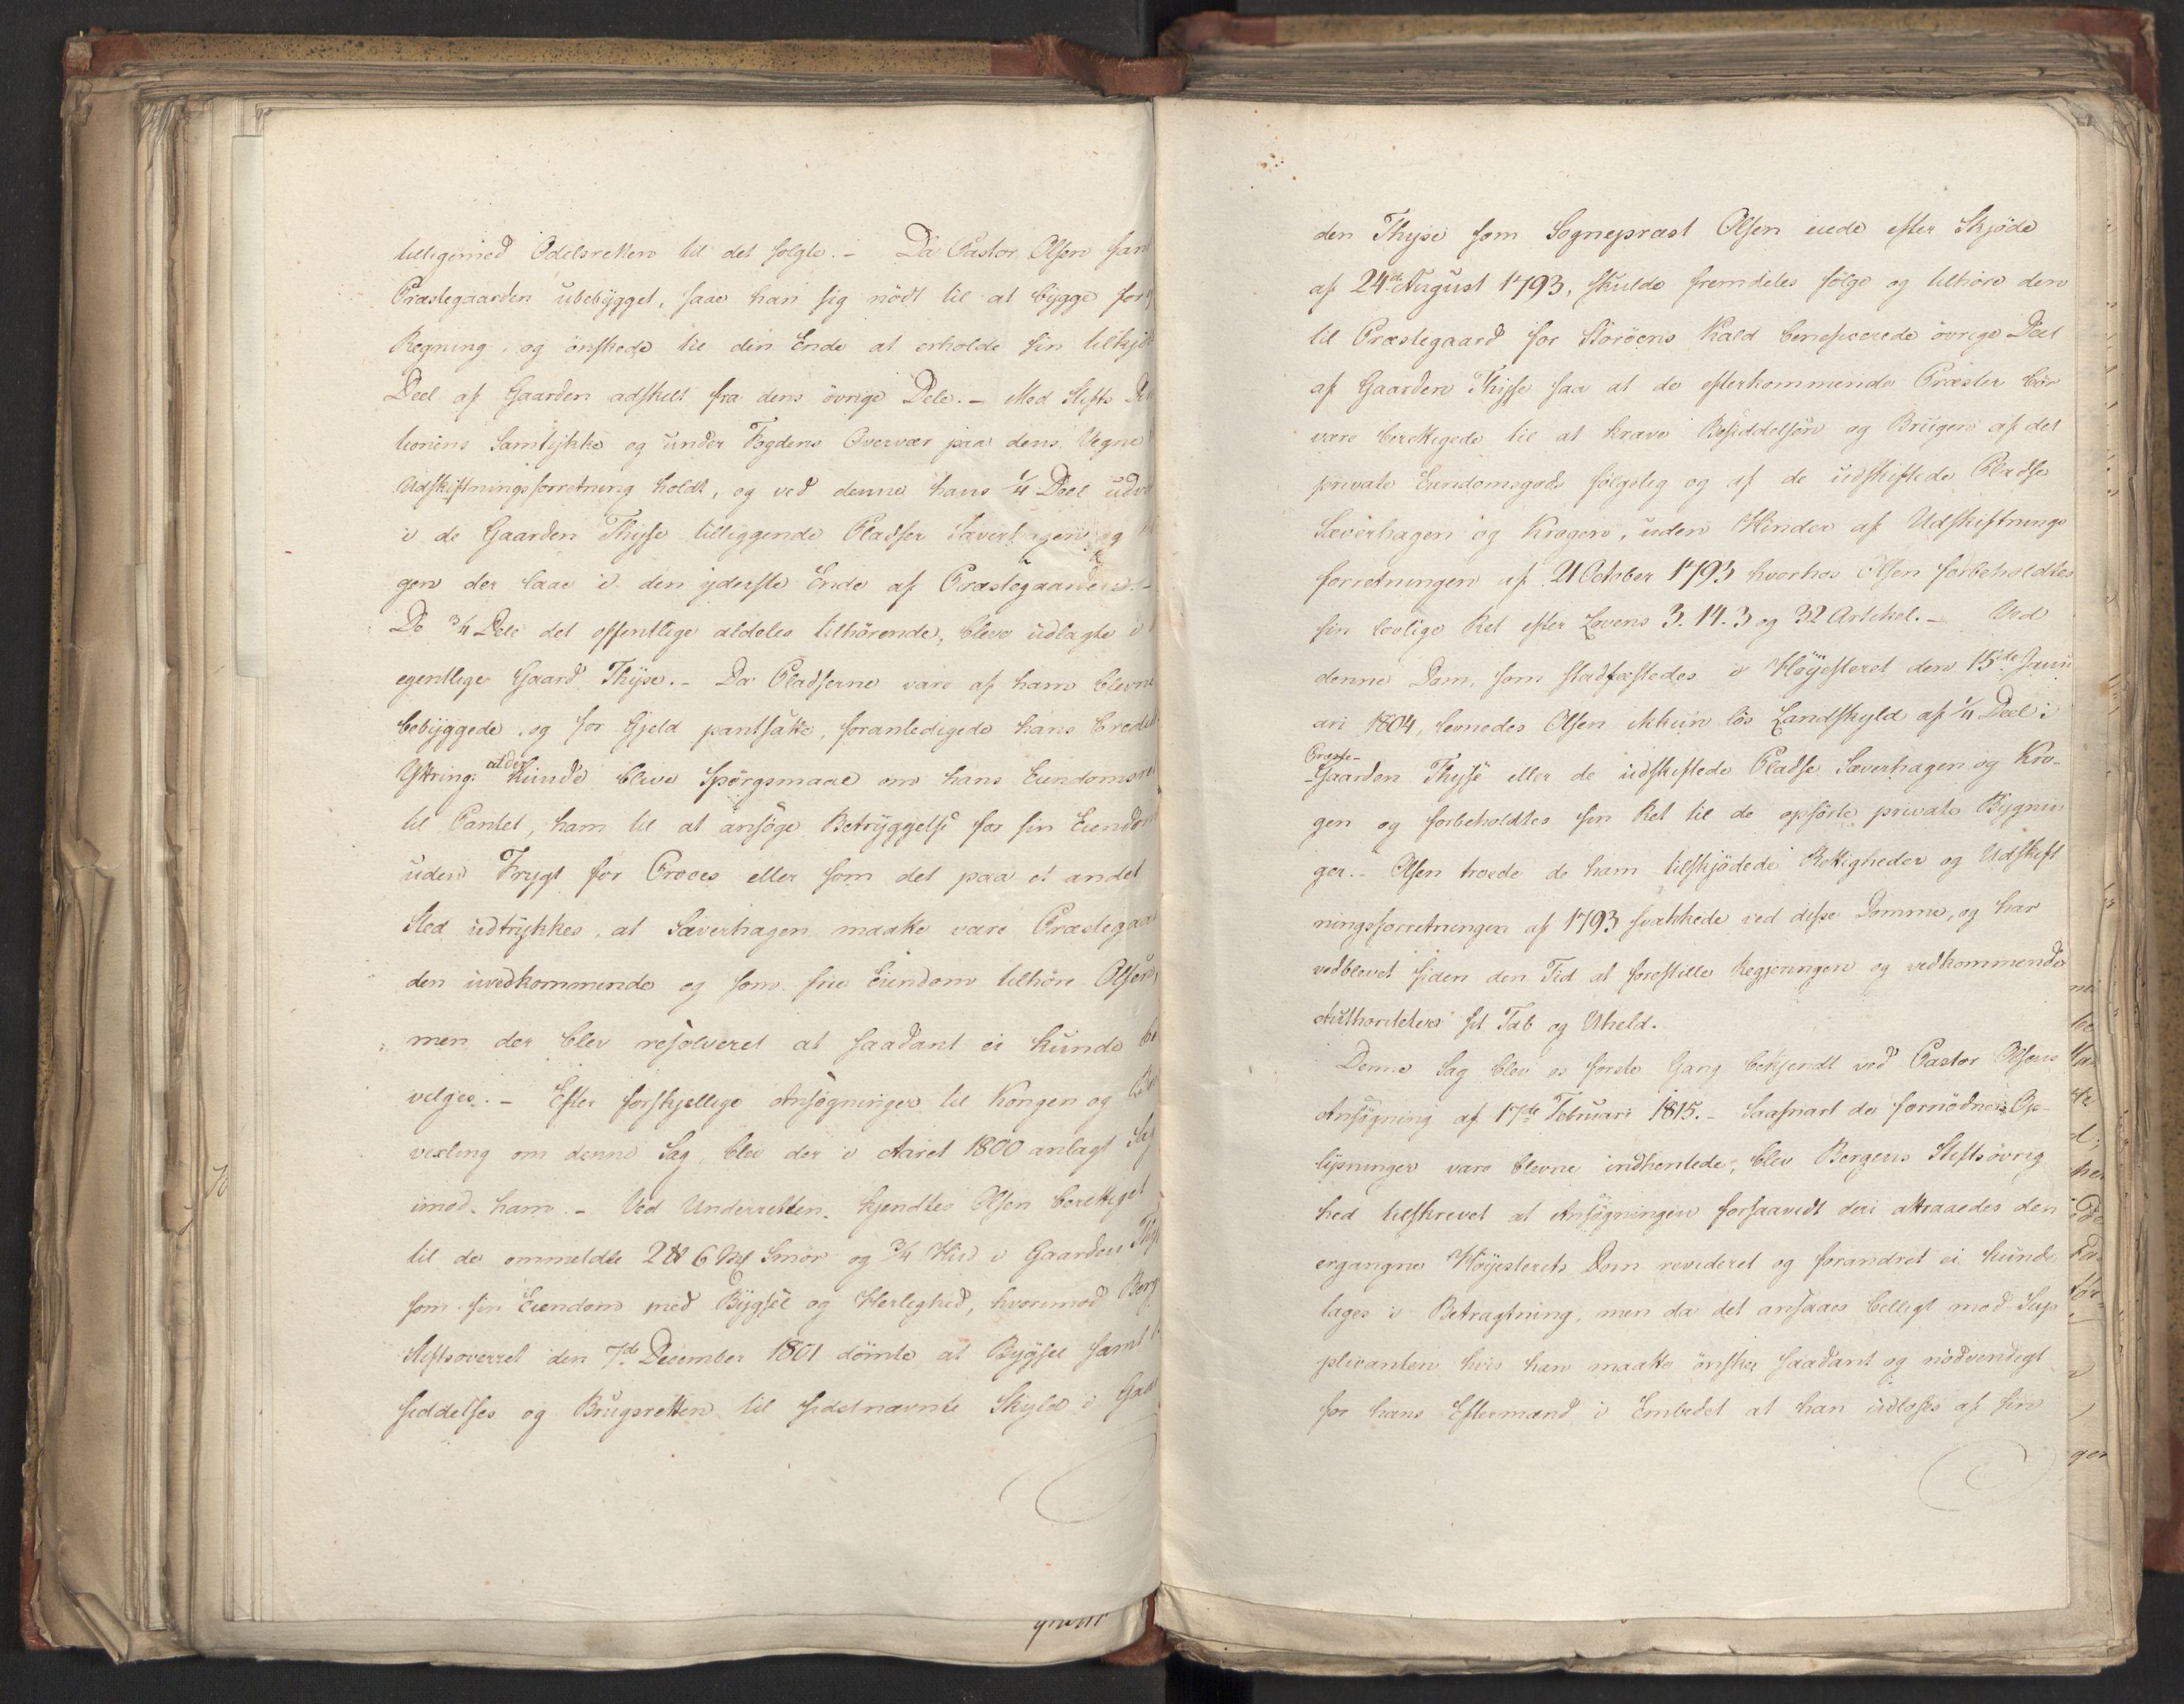 tilligemed Odelsretten til det solgte. – Da Pastor Olsen fant
Præstegaarden ubebygget, saae han sig nödt til at bygge for
Regning, og önskede til den Ende at erholde sin tilskjö
Deel af Gaarden adskilt fra dens övrige Dele. – Med Stifts Di
tionens Samtykke og under Fogdens Overvær paa dens Vegne
Udskiftningsforretning holdt, og ved denne hans 1/4 Deel udvi
i de Gaarden Thyse tilliggende Pladser Sæverhagen og
gen der laae i den yderste Ende af Præstegaarden. –
De 3/4 Dele det offentlige aldeles tilhörende, bleve udlagte i
egentlige Gaard Thyse. – Da Pladserne vare af ham blevne
bebyggede, og for Gjeld pantsatte, foranledigede hans Credit
Yttring: at der kunde blive Spörgsmaal om hans Eiendomsre
til Pantet, ham til at ansöge Betryggelse for sin Eiendom
uden Frygt for Proces eller som det paa et andet
Sted udtrykkes, at Sæverhagen maatte være Præstegaar
den uvedkommende og som frie Eiendom tilhöre Olsen,
men der blev resolveret at saadant ei kunde be
vilges. – Efter forskjellige Ansögninger til Kongen og Bre
vexling om denne Sag, blev der i Aaret 1800 anlagt Sag
imod ham. – Ved Underretten kjendtes Olsen berettiget
til de ommeldte 2 ℔ 6 Mk Smör og 3/4 Hud i Gaarden Thys
som sin Eiendom med Bygsel og Herlighed, hvorimod Berg
Stiftsoverret den 7de December 1801 dömte at Bygsel samt
siddelses og Brugsretten til sidstnævnte Skyld i Gaar
den Thyse som Sognepræst Olsen eiede efter Skjöde
af 24de August 1793, skulde fremdeles fölge og tilhöre den
til Præstegaard for Störöens Kald beneficerede övrige Deel
af Gaarden Thyse saa at de efterkommende Præster bör
være berettigede til at kræve Besiddelsen og Brugen af det
private Eiendomsgods fölgelig og af de udskiftede Pladse
Sæverhagen og Krogen, uden Hinder af Udskiftnings
forretningen af 21 October 1793 hvorhos Olsen forbeholdtes
sin lovlige Ret efter Lovens 3. 14. 3 og 32 Artikel. – Ved
denne Dom, som stadfæstedes i Höyesteret den 15de Janu
ari 1804, levnedes Olsen ikkun lös Landskyld af 1/4 Deel i
Præste-
-Gaarden Thyse eller de udskiftede Pladse Sæverhagen og Kro-
gen og forbeholdtes sin Ret til de opförte private Bygnin
ger. – Olsen troede de ham tilskjödede Rettigheder og Udskift
ningsforretningen af 1793 svækkede ved disse Domme, og har
vedblevet siden den Tid at forestille Regjeringen og vedkommende
Authoriteter sit Tab og Uheld.
Denne Sag blev os förste Gang bekjendt ved Pastor Olsens
Ansögning af 17de Februari 1815. – Saasnart de fornödne Op-
lysninger vare blevne indhentede, blev Bergens Stiftsövrig
hed tilskrevet at Ansögningen forsaavidt deri attraaedes den
ergangne Höyesterets Dom revideret og forandret ei kunde
tages i Betragtning, men da det ansaaes billigt mod Sup
plicanten hvis han maatte önske saadant og nödvendigt
for hans Eftermand i Embedet at han udlöses af sin